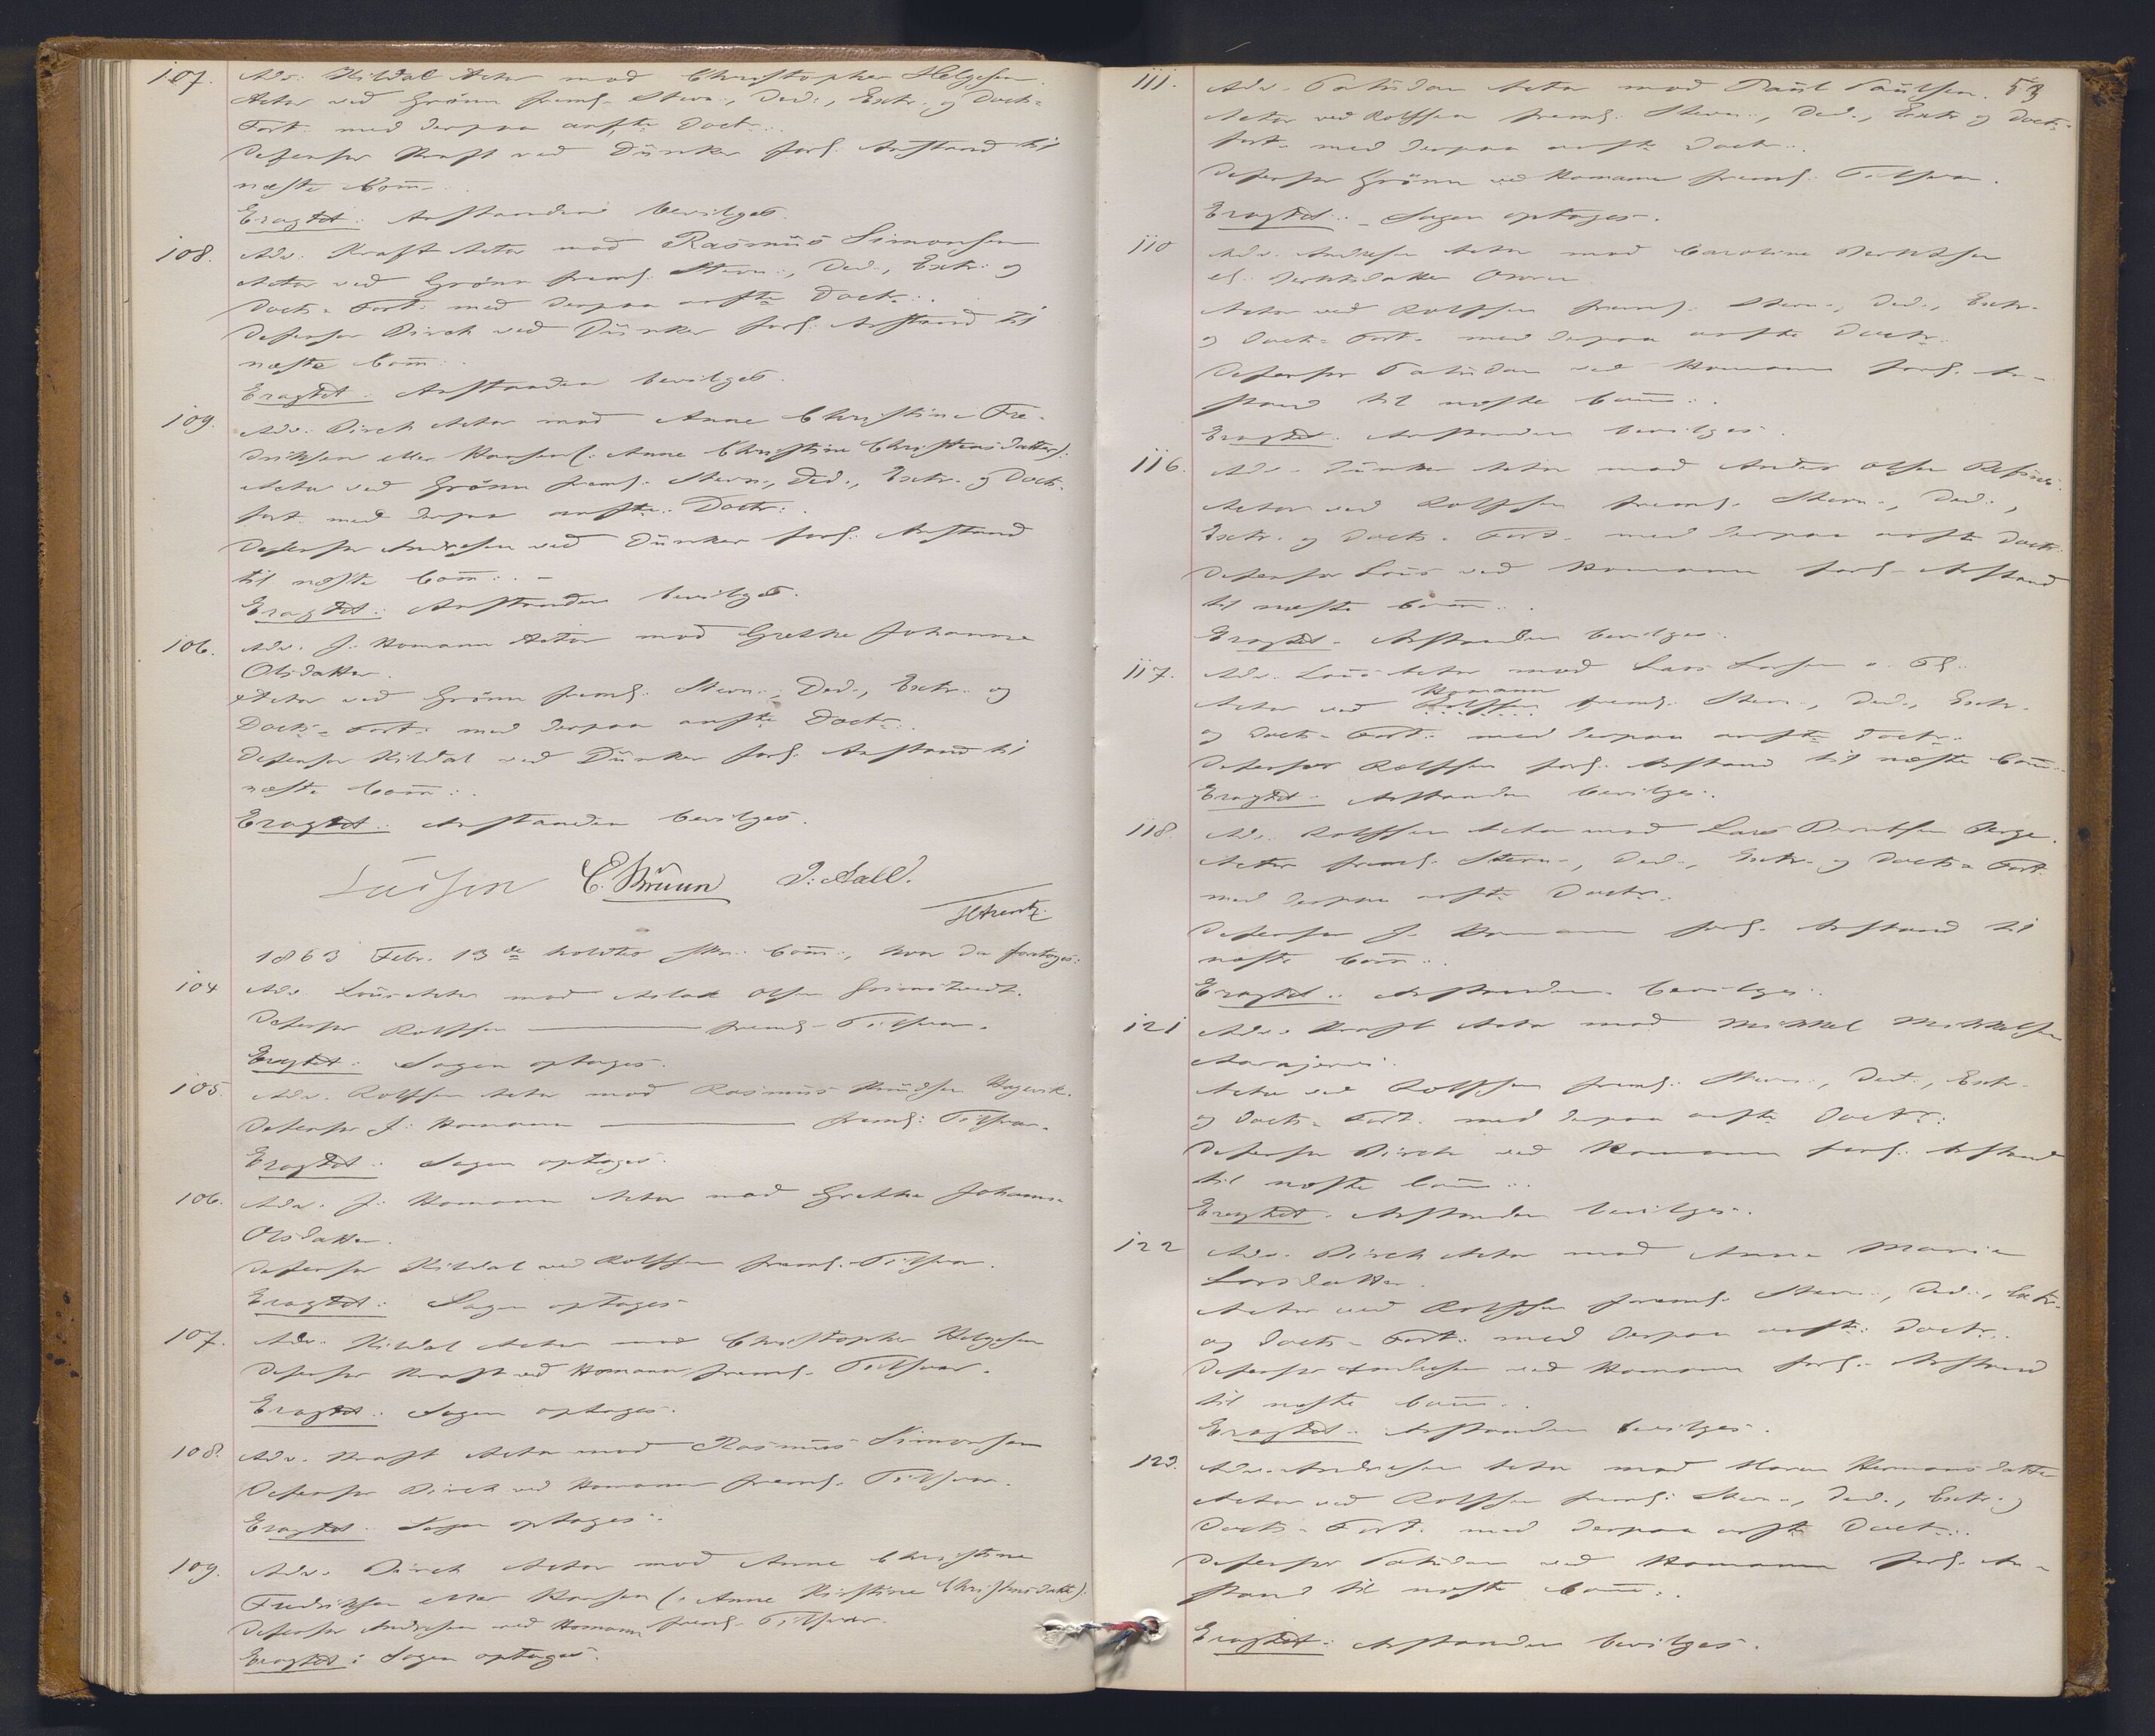 107. Adv. Kildal Actor mod Christopher Helgesen.
Actor ved Grönn freml. Stevn., Ded., Extr. og Doct.
Fort. med derpaa anfte Doctr.
Defensor Kraft ved Dünker forl. Anstand til
næste Com̄.
Eragtet: Anstanden bevilges.
108. Adv. Kraft Actor mod Rasmüs Simonsen
Actor ved Grönn freml. Stevn., Ded., Extr. og
Doct. Fort. med derpaa anfte Doctr.
Defensor Birch ved Dünker forl. Anstand til
næste Com̄.
Eragtet: Anstanden bevilges.
109. Adv. Birch Actor mod Anne Christine Fre-
driksen eller Hansen (: Anne Christine Christensdatter):
Actor ved Grönn freml. Stevn., Ded., Extr. og Doct.
fort. med derpaa anfte Doctr.
Defensor Andresen ved Dünker forl. Anstand
til næste Com̄. -
Eragtet: Anstanden bevilges.
106. Adv. J. Homann Actor mod Grethe Johanne
Olsdatter.
Actor ved Grönn freml. Stevn., Ded., Extr. og
Doct. Fort. med derpaa anfte Doctr.
Defensor Kildal ved Dünker forl. Anstand til
næste Com̄.
Eragtet: Anstanden bevilges.
C. Brüun J. Aall.
1863 Febr. 13de holdtes Com̄., hvor da foretoges:
104 Adv. Loüs Actor mod Aslak Olsen
Defensor Rolfsen freml. Tilsvar.
Eragtet: Sagen optages.
105. Adv. Rolfsen Actor mod Rasmüs Knüdsen Hagevik.
Defensor J. Homann freml. Tilsvar.
Eragtet: Sagen optages.
106. Adv. J. Homann Actor mod Grethe Johanne
Olsdatter.
Defensor Kildal ved Rolfsen freml. Tilsvar.
Eragtet: Sagen optages
107. Adv. Kildal Actor mod Christopher Helgesen
Defensor Kraft ved Homann freml. Tilsvar.
Eragtet: Sagen optages.
108. Adv. Kraft Actor mod Rasmüs Simonsen
Defensor Birch ved Homann freml. Tilsvar.
Eragtet: Sagen optages.
109. Adv. Birch Actor mod Anne Christine
Fredriksen eller Hansen (: Anne Kirstine Christensdatter):
Defensor Andresen ved Homann freml. Tilsvar.
Eragtet: Sagen optages.
53
111. Adv. Actor mod Paül Paülsen.
Actor ved Rolfsen freml. Stevn., Ded., Extr. og Doct.
fort. med derpaa anfte Doctr.
Defensor Grönn ved Homann freml. Tilsvar.
Eragtet: Sagen optages.
110 Adv. Andresen Actor mod Caroline
el.
Actor ved Rolfsen freml. Stevn., Ded., Extr.
og Doct. Fort. med derpaa anfte Doctr.
Defensor ved Homann forl. An-
stand til næste Com̄.
Eragtet: Anstanden bevilges.
116. Adv. Dünker Actor mod Anders Olsen
Actor ved Rolfsen freml. Stevn., Ded.,
Extr. og Doct. Fort. med derpaa anfte Doctr.
Defensor Loüs ved Homann forl. Anstand
til næste Com̄.
Eragtet: Anstanden bevilges.
117. Adv. Loüs Actor mod Lars Larsen
Homann
Actor ved Rolfsen freml. Stevn., Ded., Extr.
og Doct. Fort. med derpaa anfte Doctr.
Defensor Rolfsen forl. Anstand til næste Com̄.
Eragtet: Anstanden bevilges.
118. Adv. Rolfsen Actor mod Lars Berntsen Berge.
Actor freml. Stevn., Ded., Extr. og Doct. Fort.
med derpaa anfte Doctr.
Defensor J. Homann forl. Anstand til
næste Com̄.
Eragtet: Anstanden bevilges.
121 Adv. Kraft Actor mod Mikkel Mikkelsen
Aarajervi.
Actor ved Rolfsen freml. Stevn., Ded., Extr.
og Doct. Fort. med derpaa anfte Doctr.
Defensor Birch ved Homann forl. Anstand
til næste Com̄.
Eragtet: Anstanden bevilges.
122 Adv. Birch Actor mod Anne Marie
Larsdatter.
Actor ved Rolfsen freml. Stevn., Ded., Extr.
og Doct. Fort. med derpaa anfte Doctr.
Defensor Andresen ved Homann forl. Anstand
til næste Com̄.
Eragtet: Anstanden bevilges.
123. Adv. Andresen Actor mod Maren Hermansdatter
Actor ved Rolfsen freml. Stevn., Ded., Extr. og
Doct. Fort. med derpaa anfte Doctr.
Defensor ved Homann forl. An-
stand til næste Com̄.
Eragtet: Anstanden bevilges.